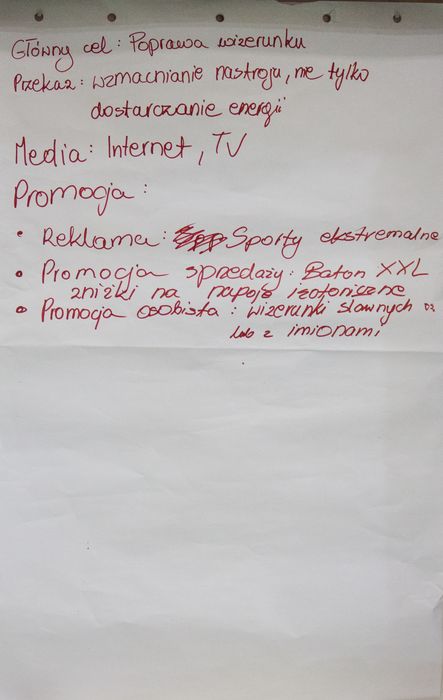 Główny cel: Poprawa wizerunku
Przekaz: wzmacnianie nastroju, nie tylko
dostarczanie energii
Media: Internet, TV
Promocja:
• Reklama: Sporty ekstremalne
• Promocja sprzedaży: Baton XXL
zniżki na napoje izotoniczne
• Promocja osobista: wizerunki sławnych
lub z imionami